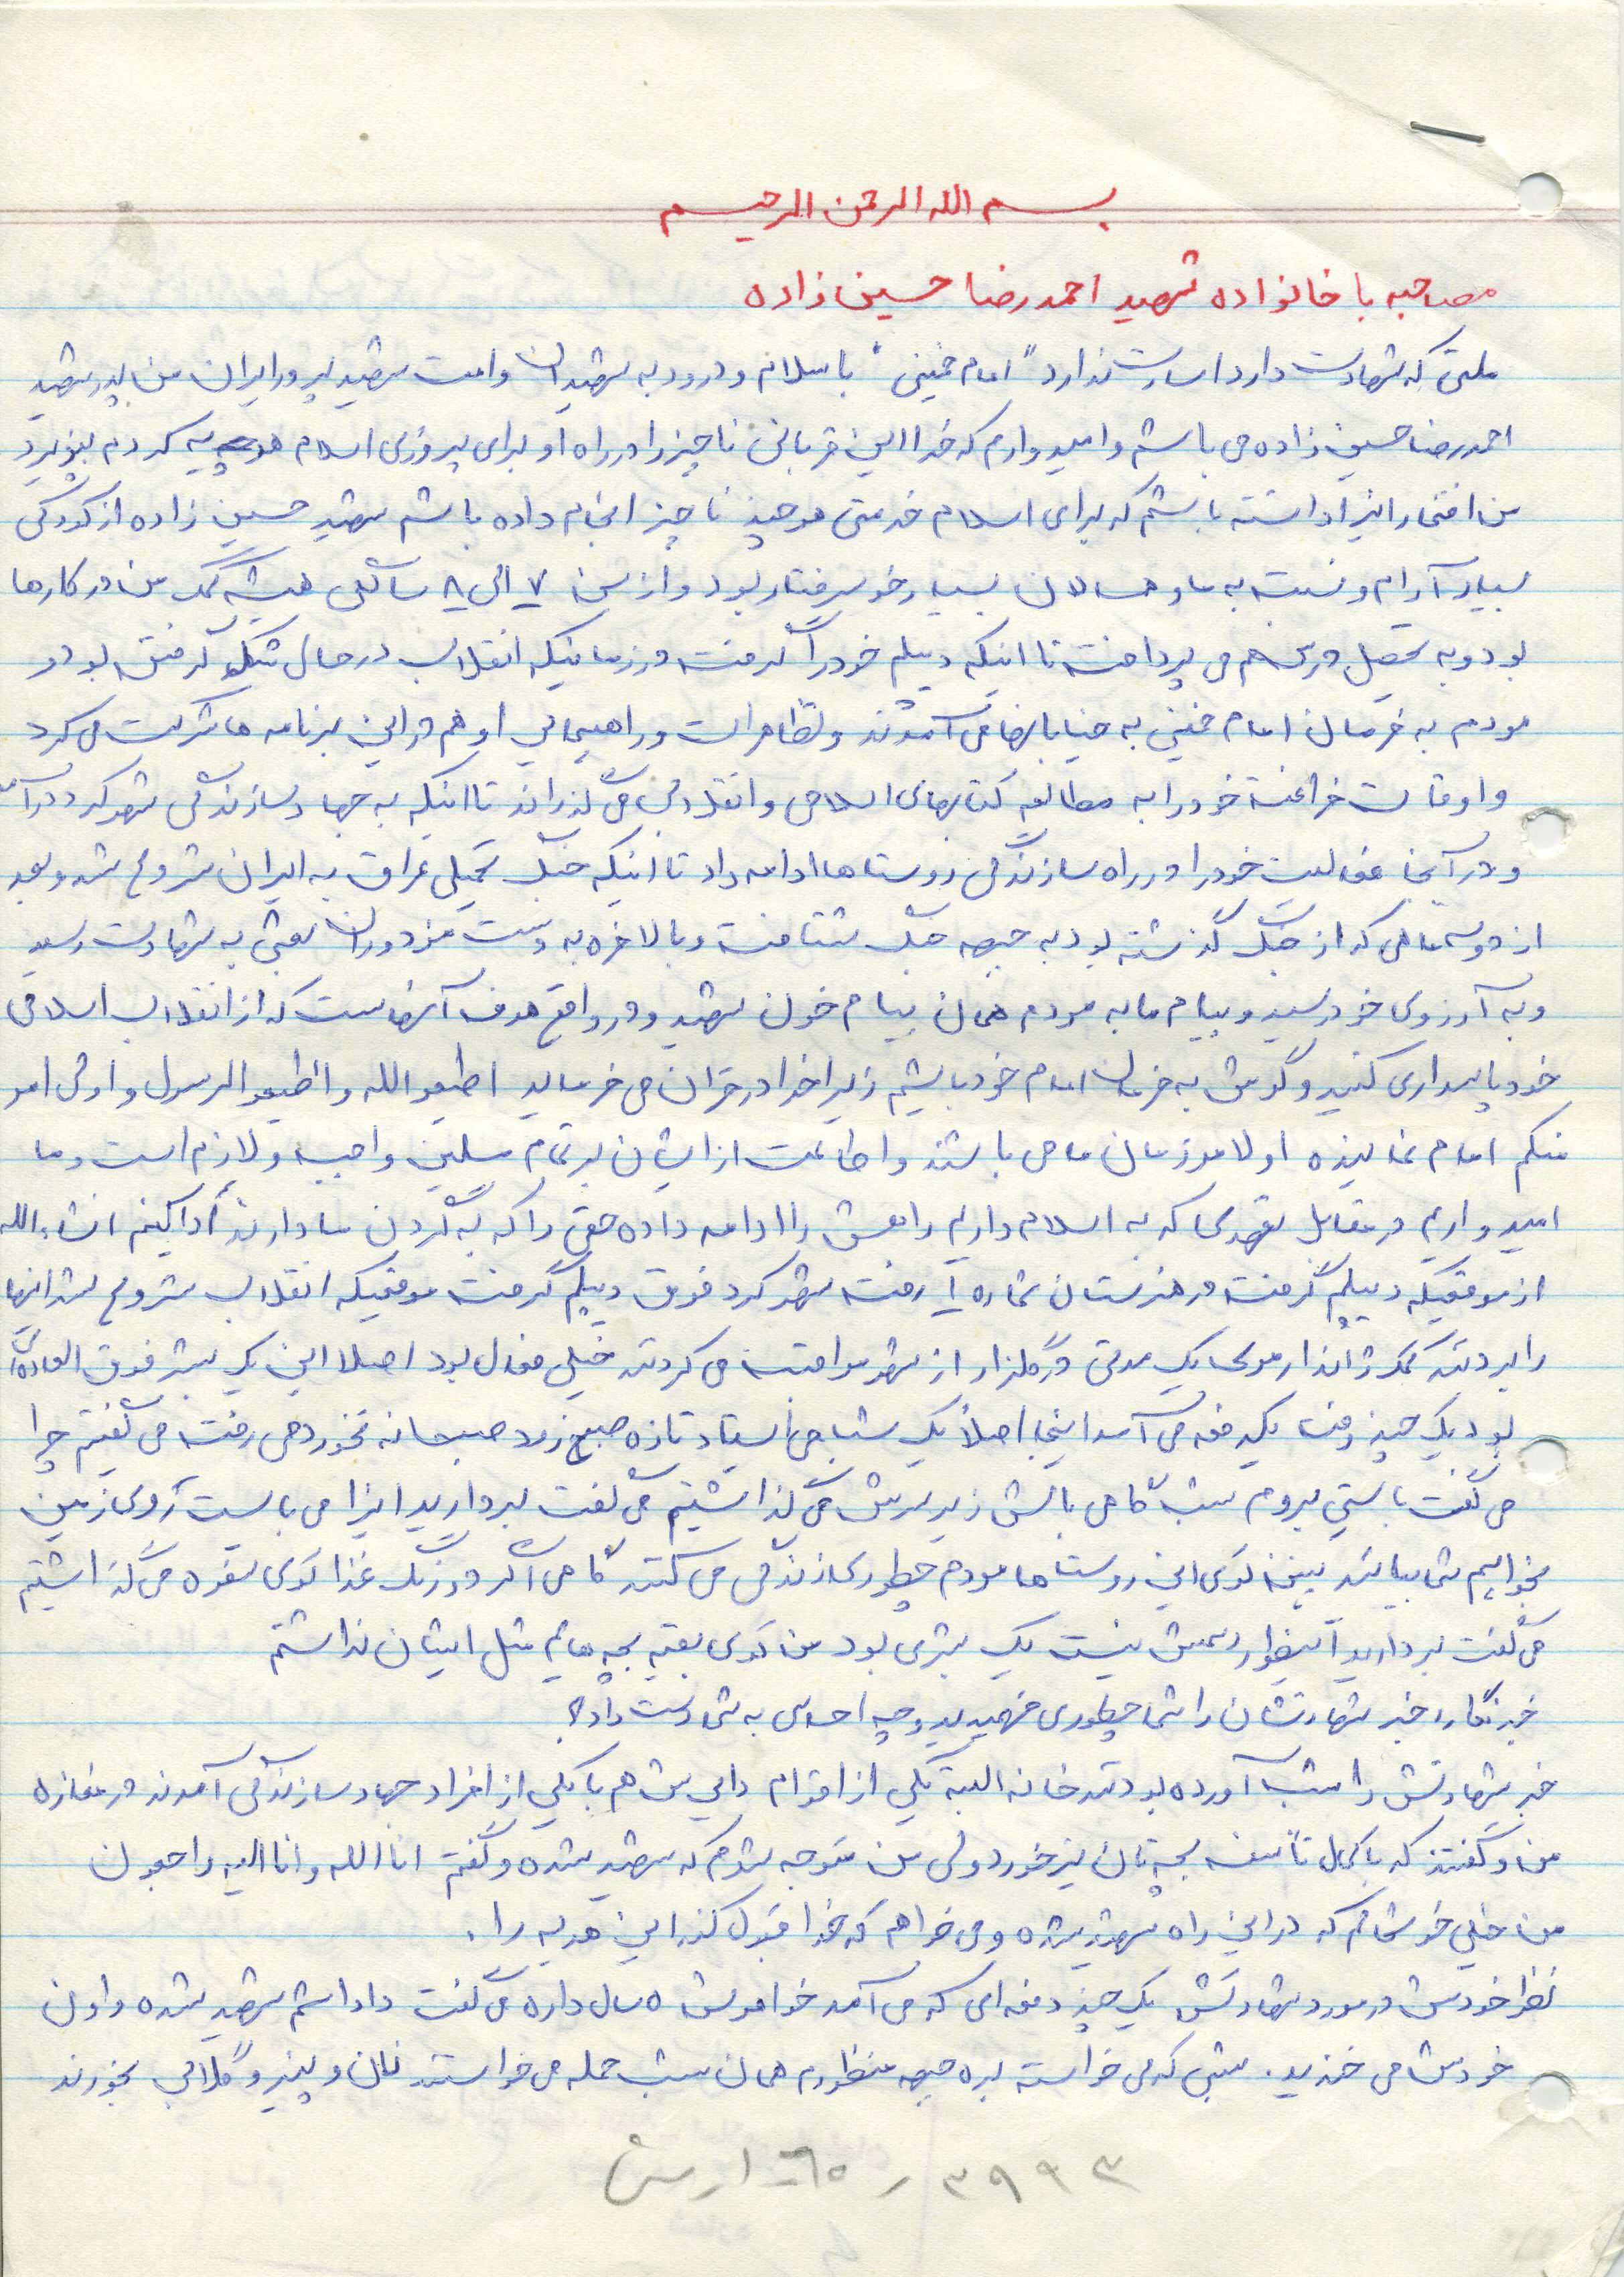 بسم الله الرحمن الرحیم
مصاحبه با خانواده شهید احمدرضا حسین زاده
ملتی که شهادت دارد اسارت ندارد "امام خمینی" با سلام و درود به شهیدان و امت شهید پرور ایران من پدر شهید
احمدرضا حسین زاده می باشم و امیدوارم که خدا این قربانی ناچیز را در راه او برای پیروزی اسلام هدیه کردم بپذیرد
من افتخار اینرا داشته باشم که برای اسلام خدمتی هرچند ناچیز انجام داده باشم شهید حسین زاده از کودکی
بسیار آرام و نسبت به ما و همسالان بسیار خوشرفتار بود و از سن ۷ الی ۸ سالگی همیشه کمک من در کارها
بود و به تحصیل درس هم می پرداخت تا اینکه دیپلم خود را گرفت و زمانیکه انقلاب در حال شکل گرفتن بود و
مردم به فرمان امام خمینی به خیابانها می آمدند و تظاهرات و راهپیمایی او هم در این برنامه ها شرکت می کرد
و اوقات فراغت خود را به مطالعه کتابهای اسلامی و انقلابی می گذراند تا اینکه به جهاد سازندگی شهرکرد درآمد
و در آنجا فعالیت خود را در راه سازندگی روستاها ادامه داد تا اینکه جنگ تحمیلی عراق به ایران شروع شد و بعد
از دو سه ماهی که از جنگ گذشته بود به جبهه جنگ شتافت و بالاخره به دست مزدوران بعثی به شهادت رسید
و به آرزوی خود رسید و پیام ما به مردم همان پیام خون شهید و در واقع هدف آنهاست که از انقلاب اسلامی
خود پاسداری کنید و گوش به فرمان امام خود باشیم زیرا خدا در قران می فرماید اطیعو الله و اطیعو الرسول و اولی امر
منکم امام نماینده اولامر زمان ما می باشند و اطاعت از ایشان بر تمام مسلمین واجب و لازم است و ما
امیدواریم در مقابل تعهدی که به اسلام داریم راهش را ادامه داده حقی را که به گردن ما دارند أدا کنیم انشاءالله
از موقعیکه دیپلم گرفت در هنرستان شماره ۱ رفت شهرکرد فوق دیپلم گرفت موقعیکه انقلاب شروع شد اینها
را بردند کمک ژاندارمری یک مدتی در گلزار از شهر مواظبت می کردند خیلی فعال بود اصلا این یک بشر فوق العاده‌ای
بود یک چند وقت یکدفعه می آمد اینجا اصلاً یک شب می ایستاد تازه صبح زود صبحانه نخورد می رفت می گفتم چرا
می گفت بایستی بروم شب گاهی بالش زیر سرش می گذاشتیم می گفت بردارید اینرا می بایست روی زمین
بخوابیم شما بیائید ببینید توی این روستاها مردم چطوری زندگی می کنند گاهی اگر دو رنگ غذا توی سفره می گذاشتیم
می گفت بردارید اینطور رسمش نیست یک بشری بود من توی بقیه بچه هایم مثل ایشان نداشتم
خبرنگار: خبر شهادتشان را شما چطوری فهمیدید و چه احساسی به شما دست داد؟
خبر شهادتش را شب آورده بودند خانه البته یکی از اقوام دایی ش هم با یکی از افراد جهاد سازندگی آمدند در مغازه
من و گفتند که با کمال تأسف بچه تان تیر خورد ولی من متوجه شدم که شهید شده و گفتم انا الله و انا الیه راجعون
من خیلی خوشحالم که در این راه شهید شده و می خواهم که خدا قبول کند این هدیه را.
نظر خودش در مورد شهادتش یک چند دفعه ای که می آمد خواهرش ۵ سال داره می گفت داداشم شهید شده و اون
خودش می خندید. شبی که می خواسته بره جبهه منظورم همان شب حمله می خواستند نان و پنیر و گلابی بخورند
۳۹۹۳ ر ٦٠-١ رس